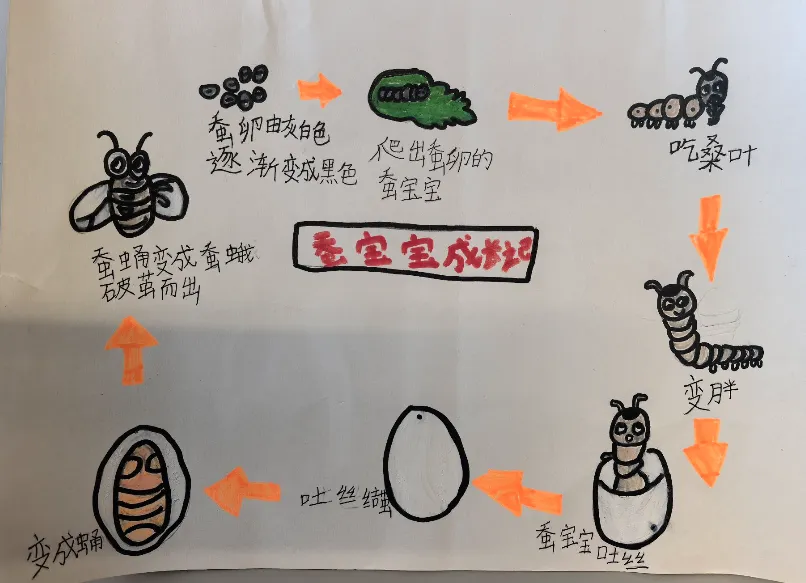 蚕宝宝成长记
蚕卵由灰白色
逐渐变成黑色
爬出蚕卵的
蚕宝宝
吃桑叶
变胖
蚕宝宝吐丝
吐丝
变成蛹
蚕蛹变成蚕蛾
破茧而出